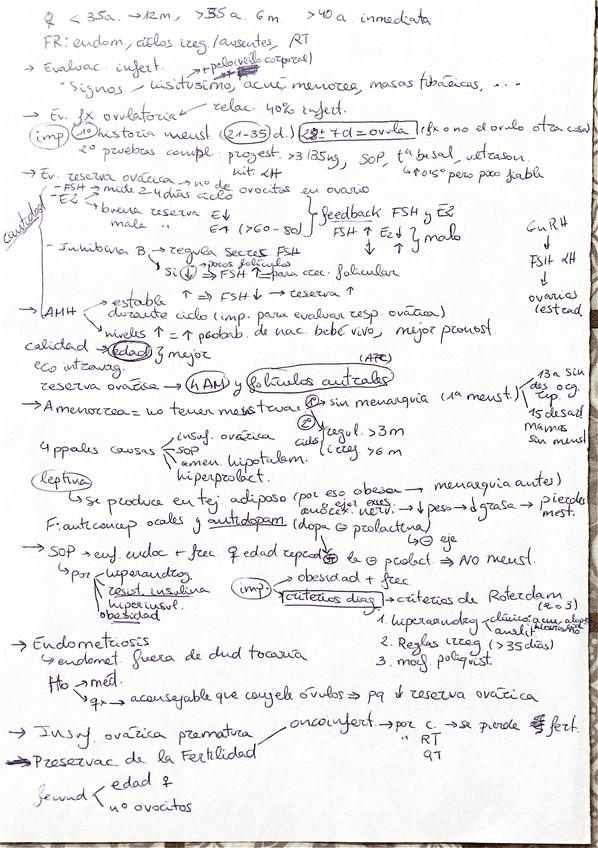 ♀ < 35a. → 12m, > 35a. 6m. > 40a. inmediata
FR: endom, ciclos irreg./ausentes, RT
→ Evaluac. infert. + pelo (vello corporal)
- Signos hisitusimo, acné, menorrea, masas tubáricas, ...
→ Ev. fx ovulatoria relac. 40% infert.
imp 1º historia menst. (21-35 d.) 28 ± 7d = ovula (fx o no el ovulo otra cosa)
2º pruebas compl. progest. > 3/5ng, SOP, tª basal, ultrason.
kit LH ↑0'5º pero poco fiable
→ Ev. reserva ovárica → nº de ovocitos en ovario
cantidad
- FSH → mide 2-4 días ciclo
- E2 buena reserva E↓
mala " E↑ (>60-80)
feedback FSH y E2
FSH ↑ E2 ↓
↓ ↑ } malo
GnRH
↓
FSH LH
↓
ovarios
(estrad
- Inhibina B → regula secrec FSH
si ↓ → pocos folículos ⇒ FSH ↑ = para crec. folicular
↑ ⇒ FSH ↓ → reserva ↑
→ AMH estable durante ciclo (imp. para evaluar resp. ovárica)
niveles ↑ = ↑ probab. de nac. bebé vivo, mejor pronost
calidad → edad } mejor
eco intravag. (AFC)
reserva ovárica → HAM y folículos antrales
→ Amenorrea = no tener menstruac. 1º sin menarquia (1ª menst.)
13a sin des org. rep.
15 desarr mamas sin menst
2º ciclos regul. > 3m
irreg. > 6m
4 ppales causas insuf. ovárica
SOP
amen. hipotalam.
hiperprolact.
leptina
↳ se produce en tej adiposo (por eso obesar → menarquia antes)
ejer. exces.
anorex. nerv. → ↓ peso → ↓ grasa → pierdes mest.
F: anticoncep. orales y antidopam. (dopa ⊖ prolactina)
↳ ⊖ eje
→ SOP → enf. endoc + frec. ♀ edad reprod la ⊖ prolact. ⇒ NO menst.
↳ por hiperandrog.
resist. insulina
hiperinsul.
obesidad
imp → obesidad + frec
criterios diag → criterios de Roterdam (2 o 3)
1. hiperandrog clínico: acne, alope
analít.
2. Reglas irreg (>35 días)
3. morf. poliquist.
→ Endometriosis
↳ endomet. fuera de dnd tocaría
tto → med.
qx → aconsejable que congele óvulos ⇒ pq ↓ reserva ovárica
→ Insuf. ovárica prematura
→ Preservac de la Fertilidad oncoinfert. → por C. → se pierde fert.
" RT
QT
fecund edad ♀
nº ovocitos